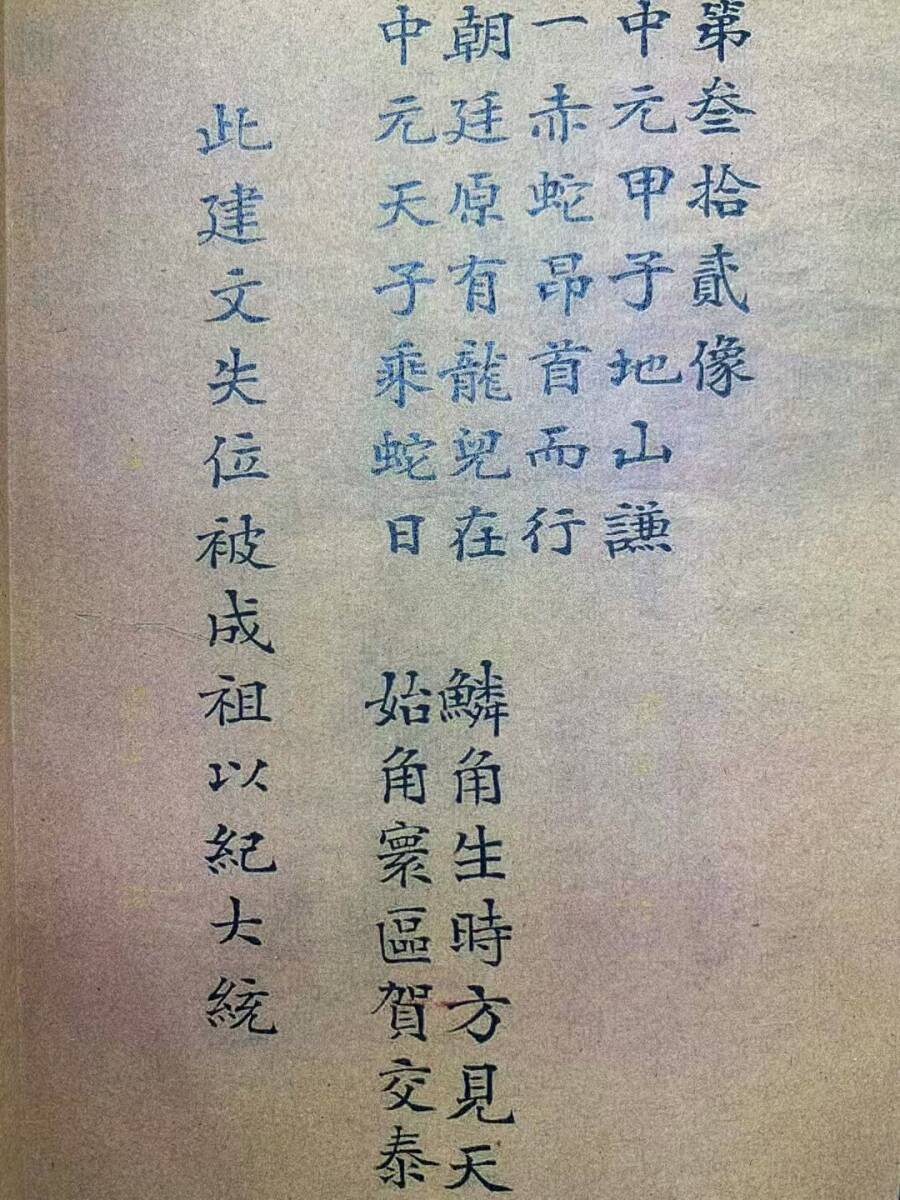 第叁拾貳像
中元甲子地山謙
一赤蛇昂首而行
朝廷原有龍兒在　鱗角生時方見天
中元天子乘蛇日　始角寰區賀交泰
此建文失位被成祖以紀大統